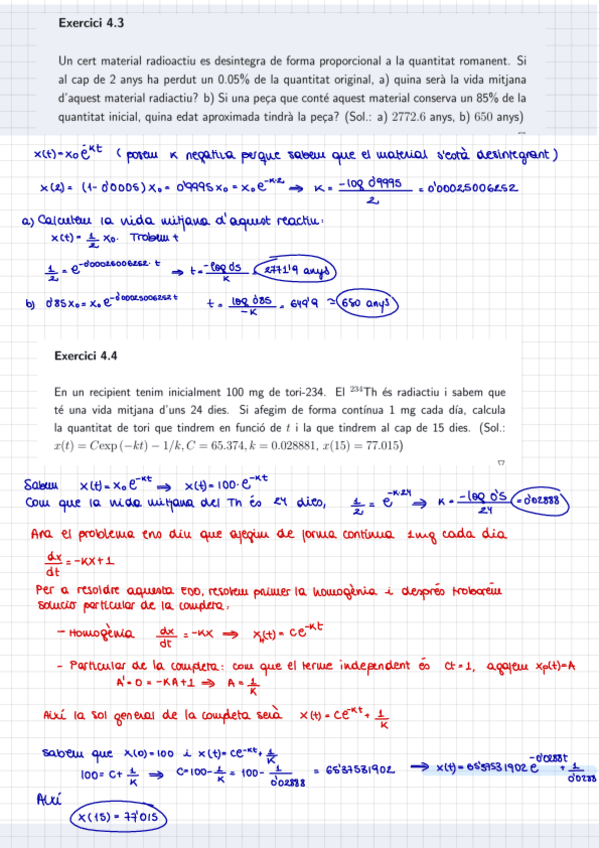 Exercici 4.3
Un cert material radioactiu es desintegra de forma proporcional a la quantitat romanent. Si
al cap de 2 anys ha perdut un 0.05% de la quantitat original, a) quina serà la vida mitjana
d'aquest material radioactiu? b) Si una peça que conté aquest material conserva un 85% de la
quantitat inicial, quina edat aproximada tindrà la peça? (Sol.: a) 2772.6 anys, b) 650 anys)
x(t)=x₀e^-kt ( posem K negativa perque sabem que el material s'està desintegrant )
x(2) = (1-0'0005) x₀ = 0'9995 x₀ = x₀e^-k·2 ⇒ K = -log 0'9995 / 2 = 0'00025006252
a) Calculem la vida mitjana d'aquest reactiu:
x(t) = 1/2 x₀. Trobem t
1/2 = e^-0'00025006252·t ⇒ t = -log 0'5 / K = 2771'9 anys
b) 0'85x₀ = x₀ e^-0'00025006252t t = log 0'85 / -K = 649'9 ≃ 650 anys
Exercici 4.4
En un recipient tenim inicialment 100 mg de tori-234. El ²³⁴Th és radiactiu i sabem que
té una vida mitjana d'uns 24 dies. Si afegim de forma contínua 1 mg cada día, calcula
la quantitat de tori que tindrem en funció de t i la que tindrem al cap de 15 dies. (Sol.:
x(t) = C exp (−kt) − 1/k, C = 65.374, k = 0.028881, x(15) = 77.015)
Sabem x(t) = x₀ e^-kt ⇒ x(t) = 100·e^-kt
Com que la vida mitjana del Th és 24 dies, 1/2 = e^-k·24 ⇒ K = -log 0'5 / 24 = 0'02888
Ara el problema ens diu que afegim de forma contínua 1mg cada dia
dx/dt = -kx+1
Per a resoldre aquesta EDO, resolem primer la homogènia i després trobarem
solució particular de la completa:
- Homogènia dx/dt = -kx ⇒ xₕ(t) = ce^-kt
- Particular de la completa: com que el terme independent és ct=1, agafem xp(t)=A
A' = 0 = -KA+1 ⇒ A = 1/K
Així la sol general de la completa serà x(t) = ce^-kt + 1/K
Sabem que x(0)=100 i x(t) = ce^-kt + 1/K
100 = C + 1/K ⇒ C=100-1/K = 100 - 1/0'02888 = 65'37531902 ⇒ x(t)=65'37531902 e^-0'0288t + 1/0'0288
Així
x(15) = 77'015